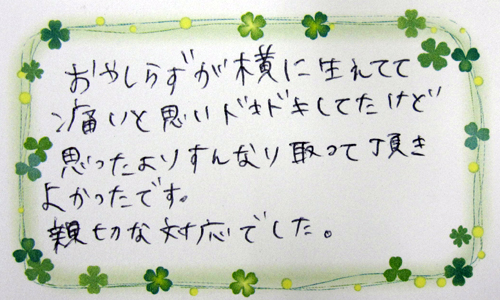 おやしらずが横に生れてて
痛いと思いドキドキしてたけど
思ったよりすんなり取って頂き
よかったです。
親切な対応でした。